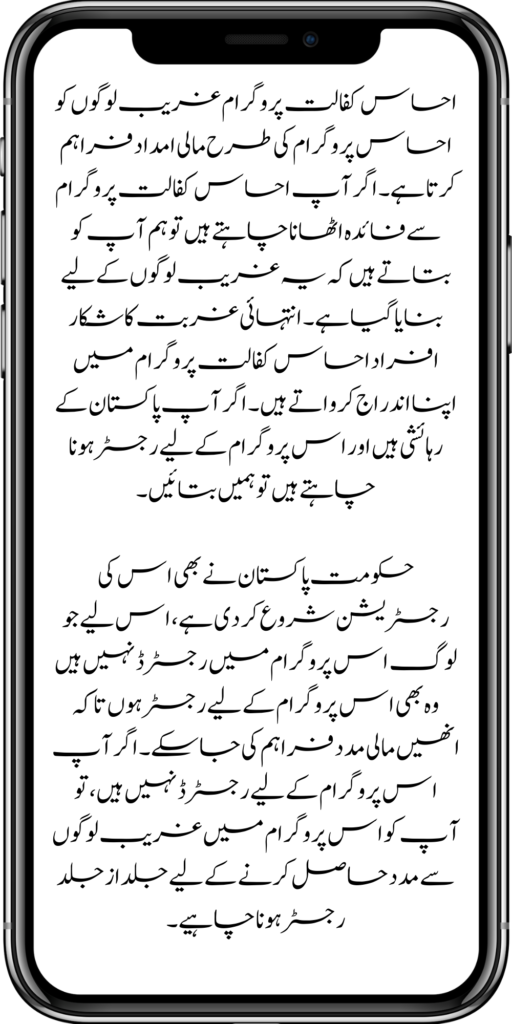 احساس کفالت پروگرام غریب لوگوں کو
احساس پروگرام کی طرح مالی امداد فراہم
کرتا ہے۔ اگر آپ احساس کفالت پروگرام
سے فائدہ اٹھانا چاہتے ہیں تو ہم آپ کو
بتاتے ہیں کہ یہ غریب لوگوں کے لیے
بنایا گیا ہے۔ انتہائی غربت کا شکار
افراد احساس کفالت پروگرام میں
اپنا اندراج کرواتے ہیں۔ اگر آپ پاکستان کے
رہائشی ہیں اور اس پروگرام کے لیے رجسٹر ہونا
چاہتے ہیں تو ہمیں بتائیں۔
حکومت پاکستان نے بھی اس کی
رجسٹریشن شروع کر دی ہے، اس لیے جو
لوگ اس پروگرام میں رجسٹرڈ نہیں ہیں
وہ بھی اس پروگرام کے لیے رجسٹر ہوں تاکہ
انھیں مالی مدد فراہم کی جا سکے۔ اگر آپ
اس پروگرام کے لیے رجسٹرڈ نہیں ہیں، تو
آپ کو اس پروگرام میں غریب لوگوں
سے مدد حاصل کرنے کے لیے جلد از جلد
رجسٹر ہونا چاہیے۔